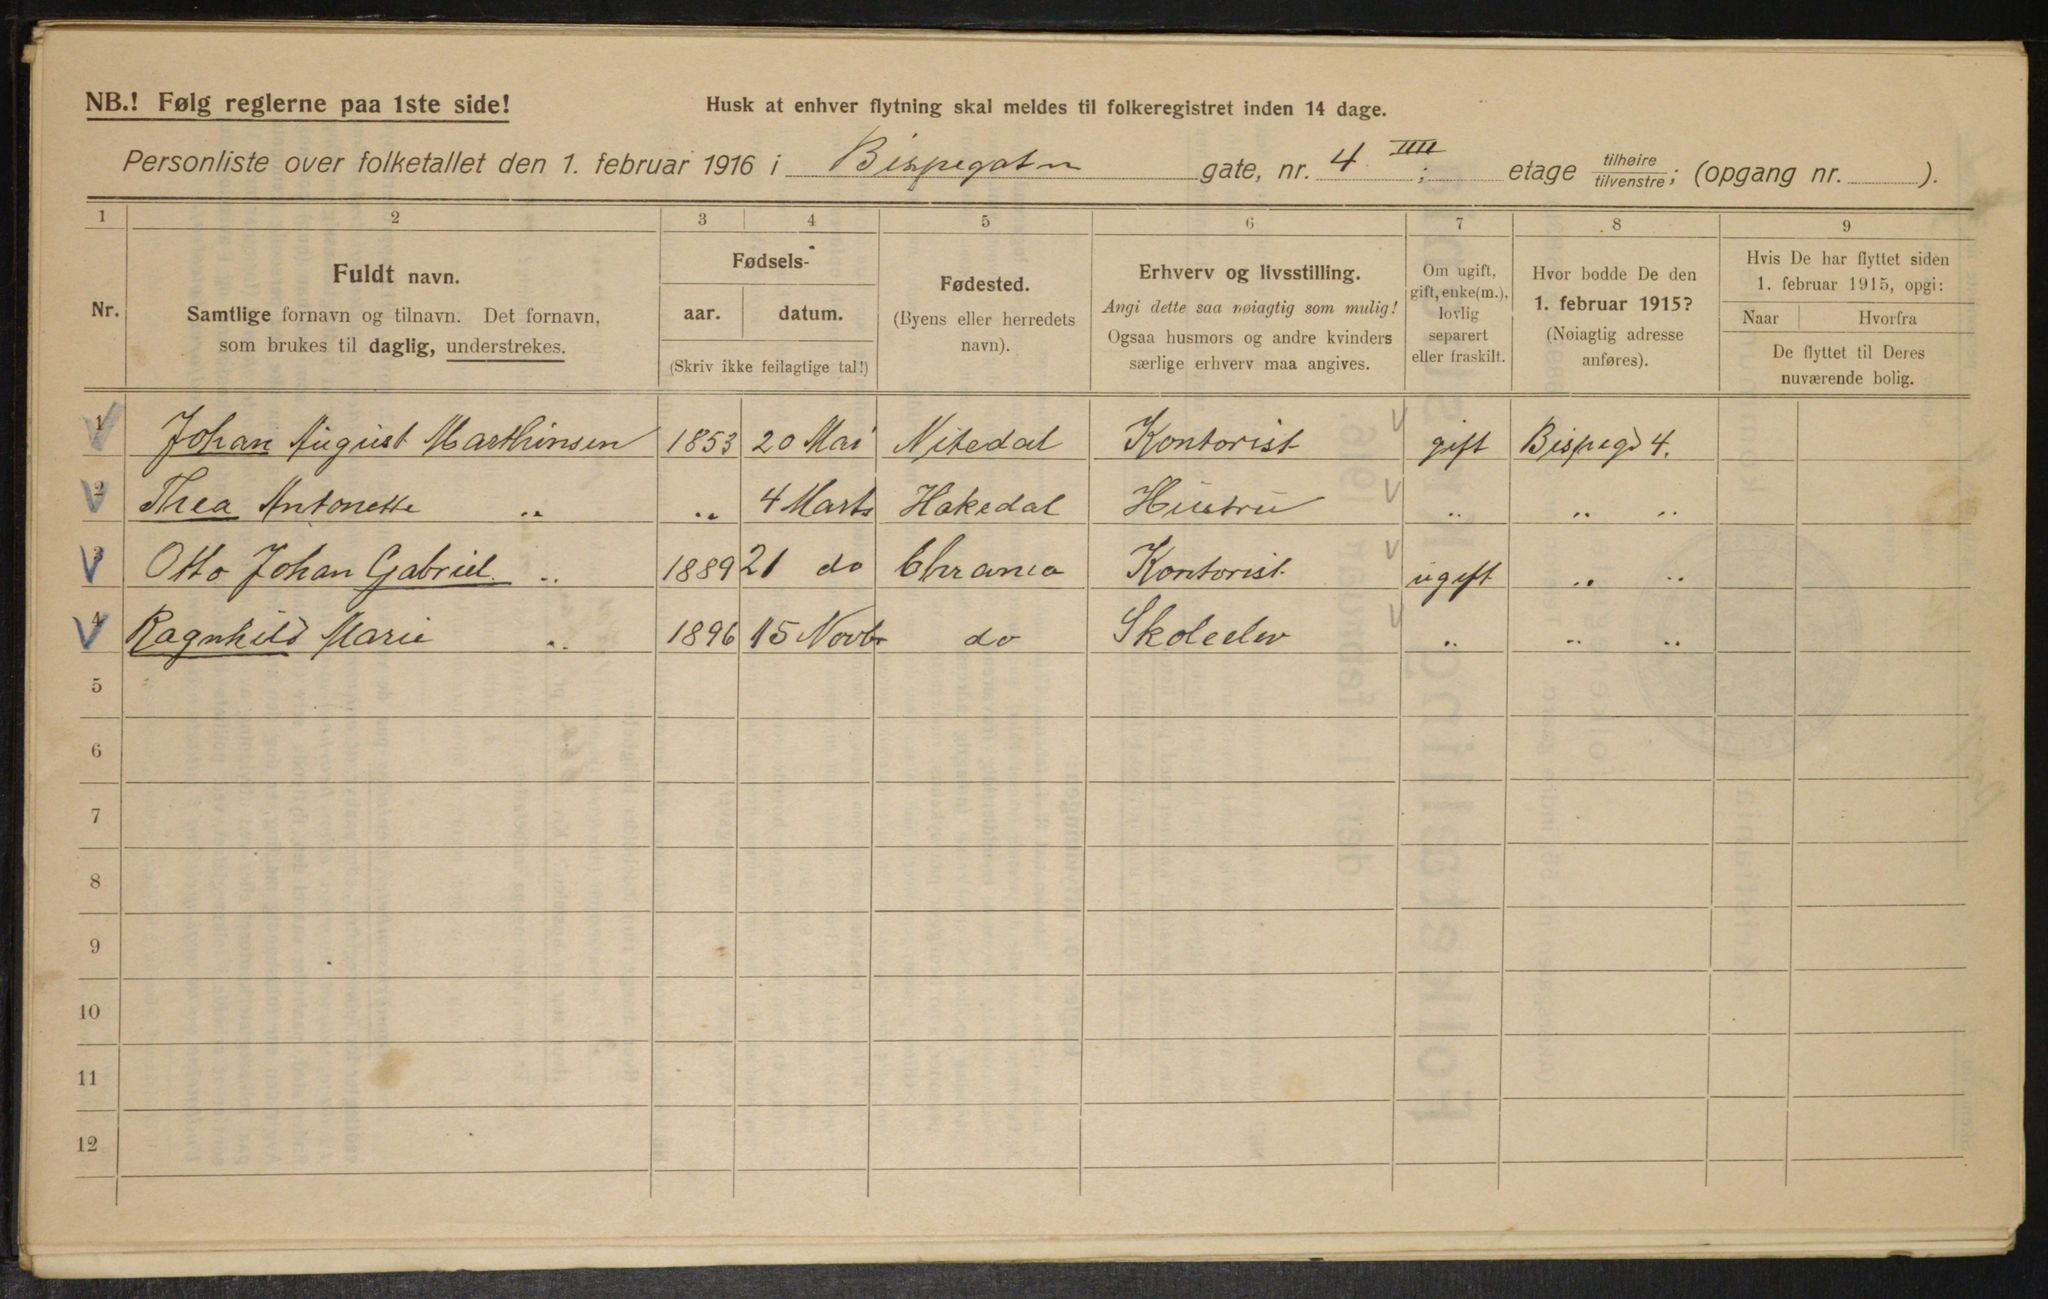 NB.! Følg reglerne paa 1ste side!
Husk at enhver flytning skal meldes til folkeregistret inden 14 dage.
Personliste over folketallet den 1. februar 1916 i Bispegaten gate, nr. 4 IIII ; etage tilhøire tilvenstre; (opgang nr. ).
1 2 3 4 5 6 7 8 9
Nr.
Fuldt navn.
Samtlige fornavn og tilnavn. Det fornavn,
som brukes til daglig, understrekes.
Fødsels-
aar. datum.
(Skriv ikke feilagtige tal!)
Fødested.
(Byens eller herredets
navn).
Erhverv og livsstilling.
Angi dette saa nøiagtig som mulig!
Ogsaa husmors og andre kvinders
særlige erhverv maa angives.
Om ugift,
gift, enke(m.),
lovlig
separert
eller fraskilt.
Hvor bodde De den
1. februar 1915?
(Nøiagtig adresse
anføres).
Hvis De har flyttet siden
1. februar 1915, opgi:
Naar Hvorfra
De flyttet til Deres
nuværende bolig.
1 Johan August Marthinsen 1853 20 Mai Nitedal Kontorist gift Bispegd 4.
2 Thea Antonette „ „ 4 Marts Hakedal Hustru „ „ „
3 Otto Johan Gabriel „ 1889 21 do Chrania Kontorist ugift „ „
4 Ragnhild Marie „ 1896 15 Novbr do Skoleelev „ „ „
5
6
7
8
9
10
11
12